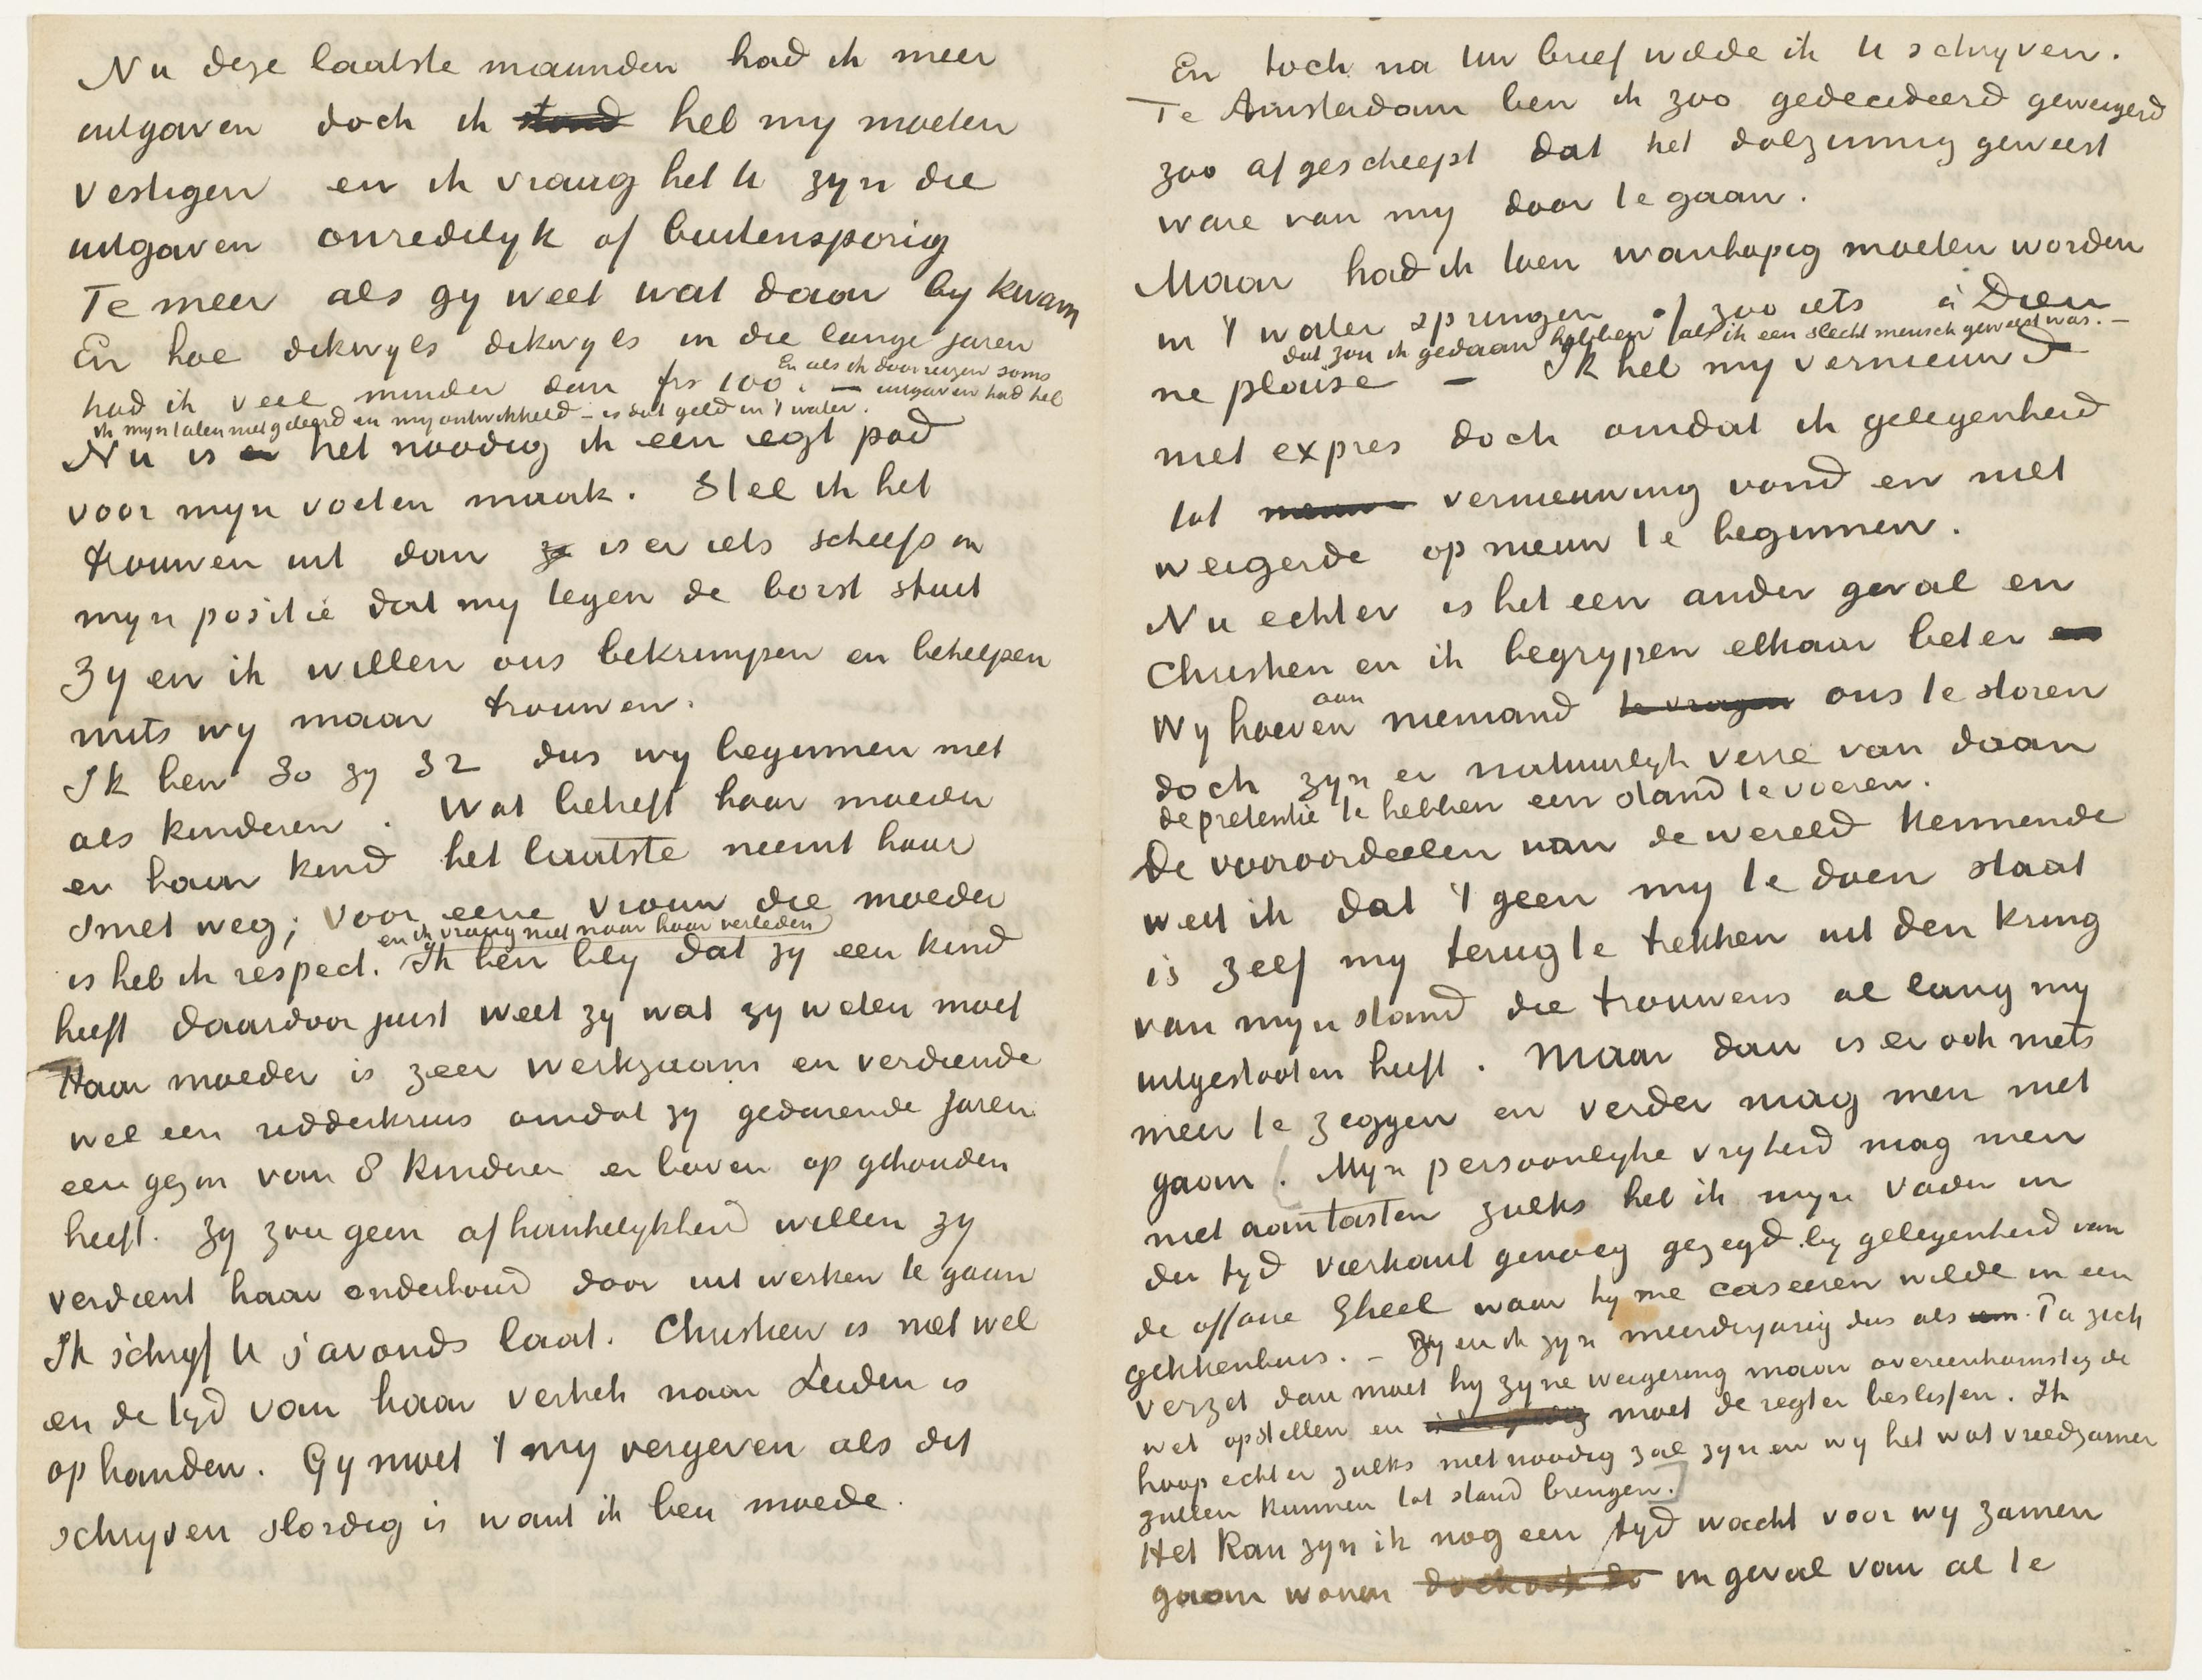 Nu deze laatste maanden had ik meer
uitgaven doch ik stond heb my moeten
vestigen en ik vraag het U zyn die
uitgaven onredelyk of buitensporig
Te meer als gy weet wat daar by kwam
En hoe dikwyls dikwyls in die lange jaren
had ik veel minder dan frs 100. — En als ik door reizen soms uitgaven had heb
ik myn talen niet geleerd en my ontwikkeld – is dat geld in 't water.
Nu is er het noodig ik een egt pad
voor myn voeten maak. Stel ik het
trouwen uit dan zo is er iets scheefs in
myn positie dat my tegen de borst stuit
Zy en ik willen ons bekrimpen en behelpen
mits wy maar trouwen.
Ik ben 30 zy 32 dus wy beginnen niet
als kinderen. Wat betreft haar moeder
en haar kind het laatste neemt haar
smet weg; voor eene vrouw die moeder
is heb ik respect. en ik vraag niet naar haar verleden Ik ben bly dat zy een kind
heeft daardoor juist weet zy wat zy weten moet
Haar moeder is zeer werkzaam en verdiende
wel een ridderkruis omdat zy gedurende jaren
een gezin van 8 kinderen er boven op gehouden
heeft. Zy zou geen afhankelykheid willen zy
verdient haar onderhoud door uit werken te gaan
Ik schryf U s'avonds laat. Christien is niet wel
en de tyd van haar vertrek naar Leiden is
op handen. Gy moet 't my vergeven als dit
schryven slordig is want ik ben moede.
En toch na Uw brief wilde ik U schryven.
Te Amsterdam ben ik zoo gedecideerd geweigerd
zoo afgescheept dat het dolzinnig geweest
ware van my door te gaan.
Maar had ik toen wanhopig moeten worden
in 't water springen of zoo iets à Dieu
dat zou ik gedaan hebben als ik een slecht mensch geweest was. —
ne plaise – Ik heb my vernieuwd
niet expres doch omdat ik gelegenheid
tot nieuwe vernieuwing vond en niet
weigerde op nieuw te beginnen.
Nu echter is het een ander geval en
Christien en ik begrypen elkaar beter en
Wy hoeven aan niemand te vragen ons te storen
doch zyn er natuurlyk verre van daan
de pretentie te hebben een stand te voeren.
De vooroordeelen van de wereld kennende
weet ik dat 't geen my te doen staat
is zelf my terug te trekken uit den kring
van myn stand die trouwens al lang my
uitgestooten heeft. Maar dan is er ook niets
meer te zeggen en verder mag men niet
gaan. Myn persoonlyke vryheid mag men
niet aantasten zulks heb ik myn vader in
der tyd vierkant genoeg gezegd by gelegenheid van
de affaire Gheel waar hy me caseeren wilde in een
gekkenhuis. – Zy en ik zyn meerderjarig dus als Pa zich
verzet dan moet hy zyne weigering maar overeenkomstig de
wet opstellen en moet de regter beslissen. Ik
hoop echter zulks niet noodig zal zyn en wy het wat vreedzamer
zullen kunnen tot stand brengen.]
Het kan zyn ik nog een tyd wacht voor wy zamen
gaan wonen doch ook do in geval van al te